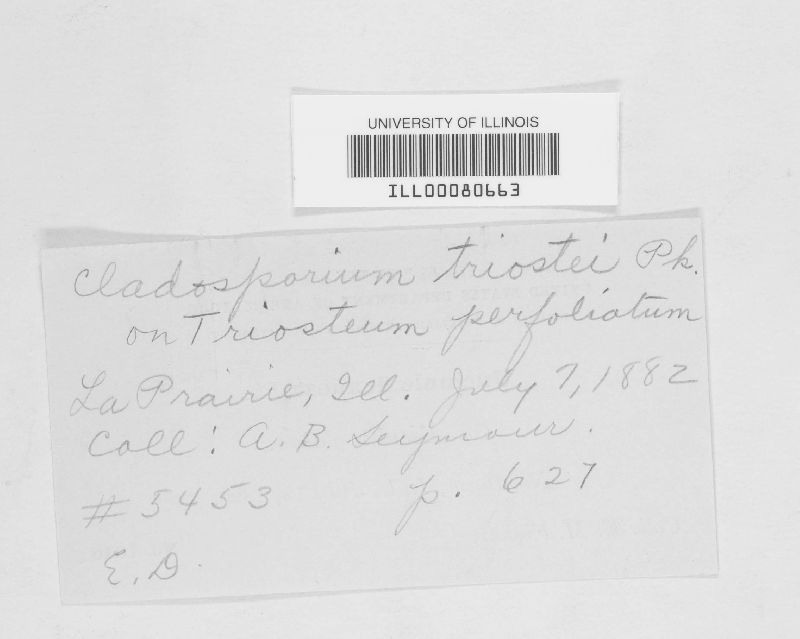 UNIVERSITY OF ILLINOIS
ILL00080663
Cladosporium triostei Pk.
on Triosteum perfoliatum
La Prairie, Ill. July 7, 1882
Coll: A. B. Seymour.
#5453 p. 627
E.D.